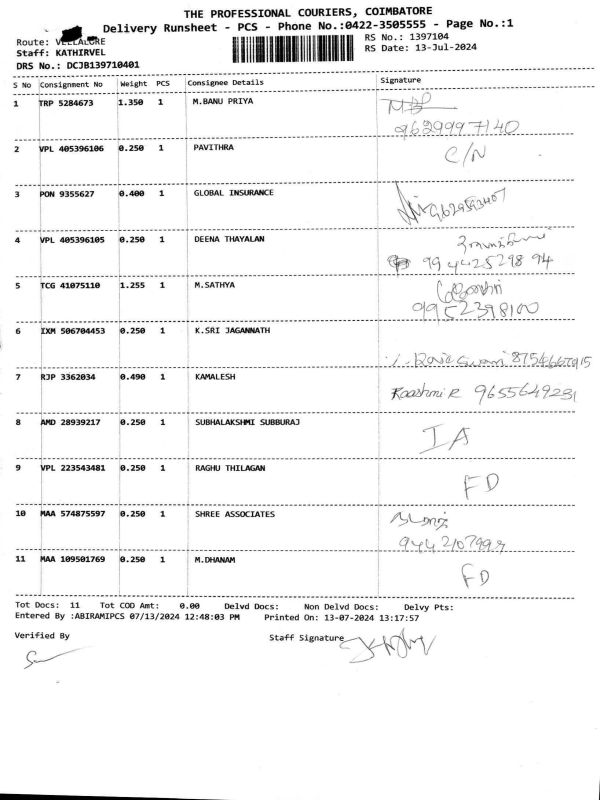 THE PROFESSIONAL COURIERS, COIMBATORE
Delivery Runsheet - PCS - Phone No.:0422-3505555 - Page No.:1
Route: VELLALORE
Staff: KATHIRVEL
DRS No.: DCJB139710401
RS No.: 1397104
RS Date: 13-Jul-2024
S No Consignment No Weight PCS Consignee Details Signature
1 TRP 5284673 1.350 1 M.BANU PRIYA
9629997140
2 VPL 405396106 0.250 1 PAVITHRA C/N
3 PON 9355627 0.400 1 GLOBAL INSURANCE
4 VPL 405396105 0.250 1 DEENA THAYALAN
99 4425298 94
5 TCG 41075110 1.255 1 M.SATHYA
9952398100
6 IXM 506704453 0.250 1 K.SRI JAGANNATH
7 RJP 3362034 0.490 1 KAMALESH
9655649231
8 AMD 28939217 0.250 1 SUBHALAKSHMI SUBBURAJ IA
9 VPL 223543481 0.250 1 RAGHU THILAGAN FD
10 MAA 574875597 0.250 1 SHREE ASSOCIATES
11 MAA 109501769 0.250 1 M.DHANAM FD
Tot Docs: 11 Tot COD Amt: 0.00 Delvd Docs: Non Delvd Docs: Delvy Pts:
Entered By :ABIRAMIPCS 07/13/2024 12:48:03 PM Printed On: 13-07-2024 13:17:57
Verified By Staff Signature